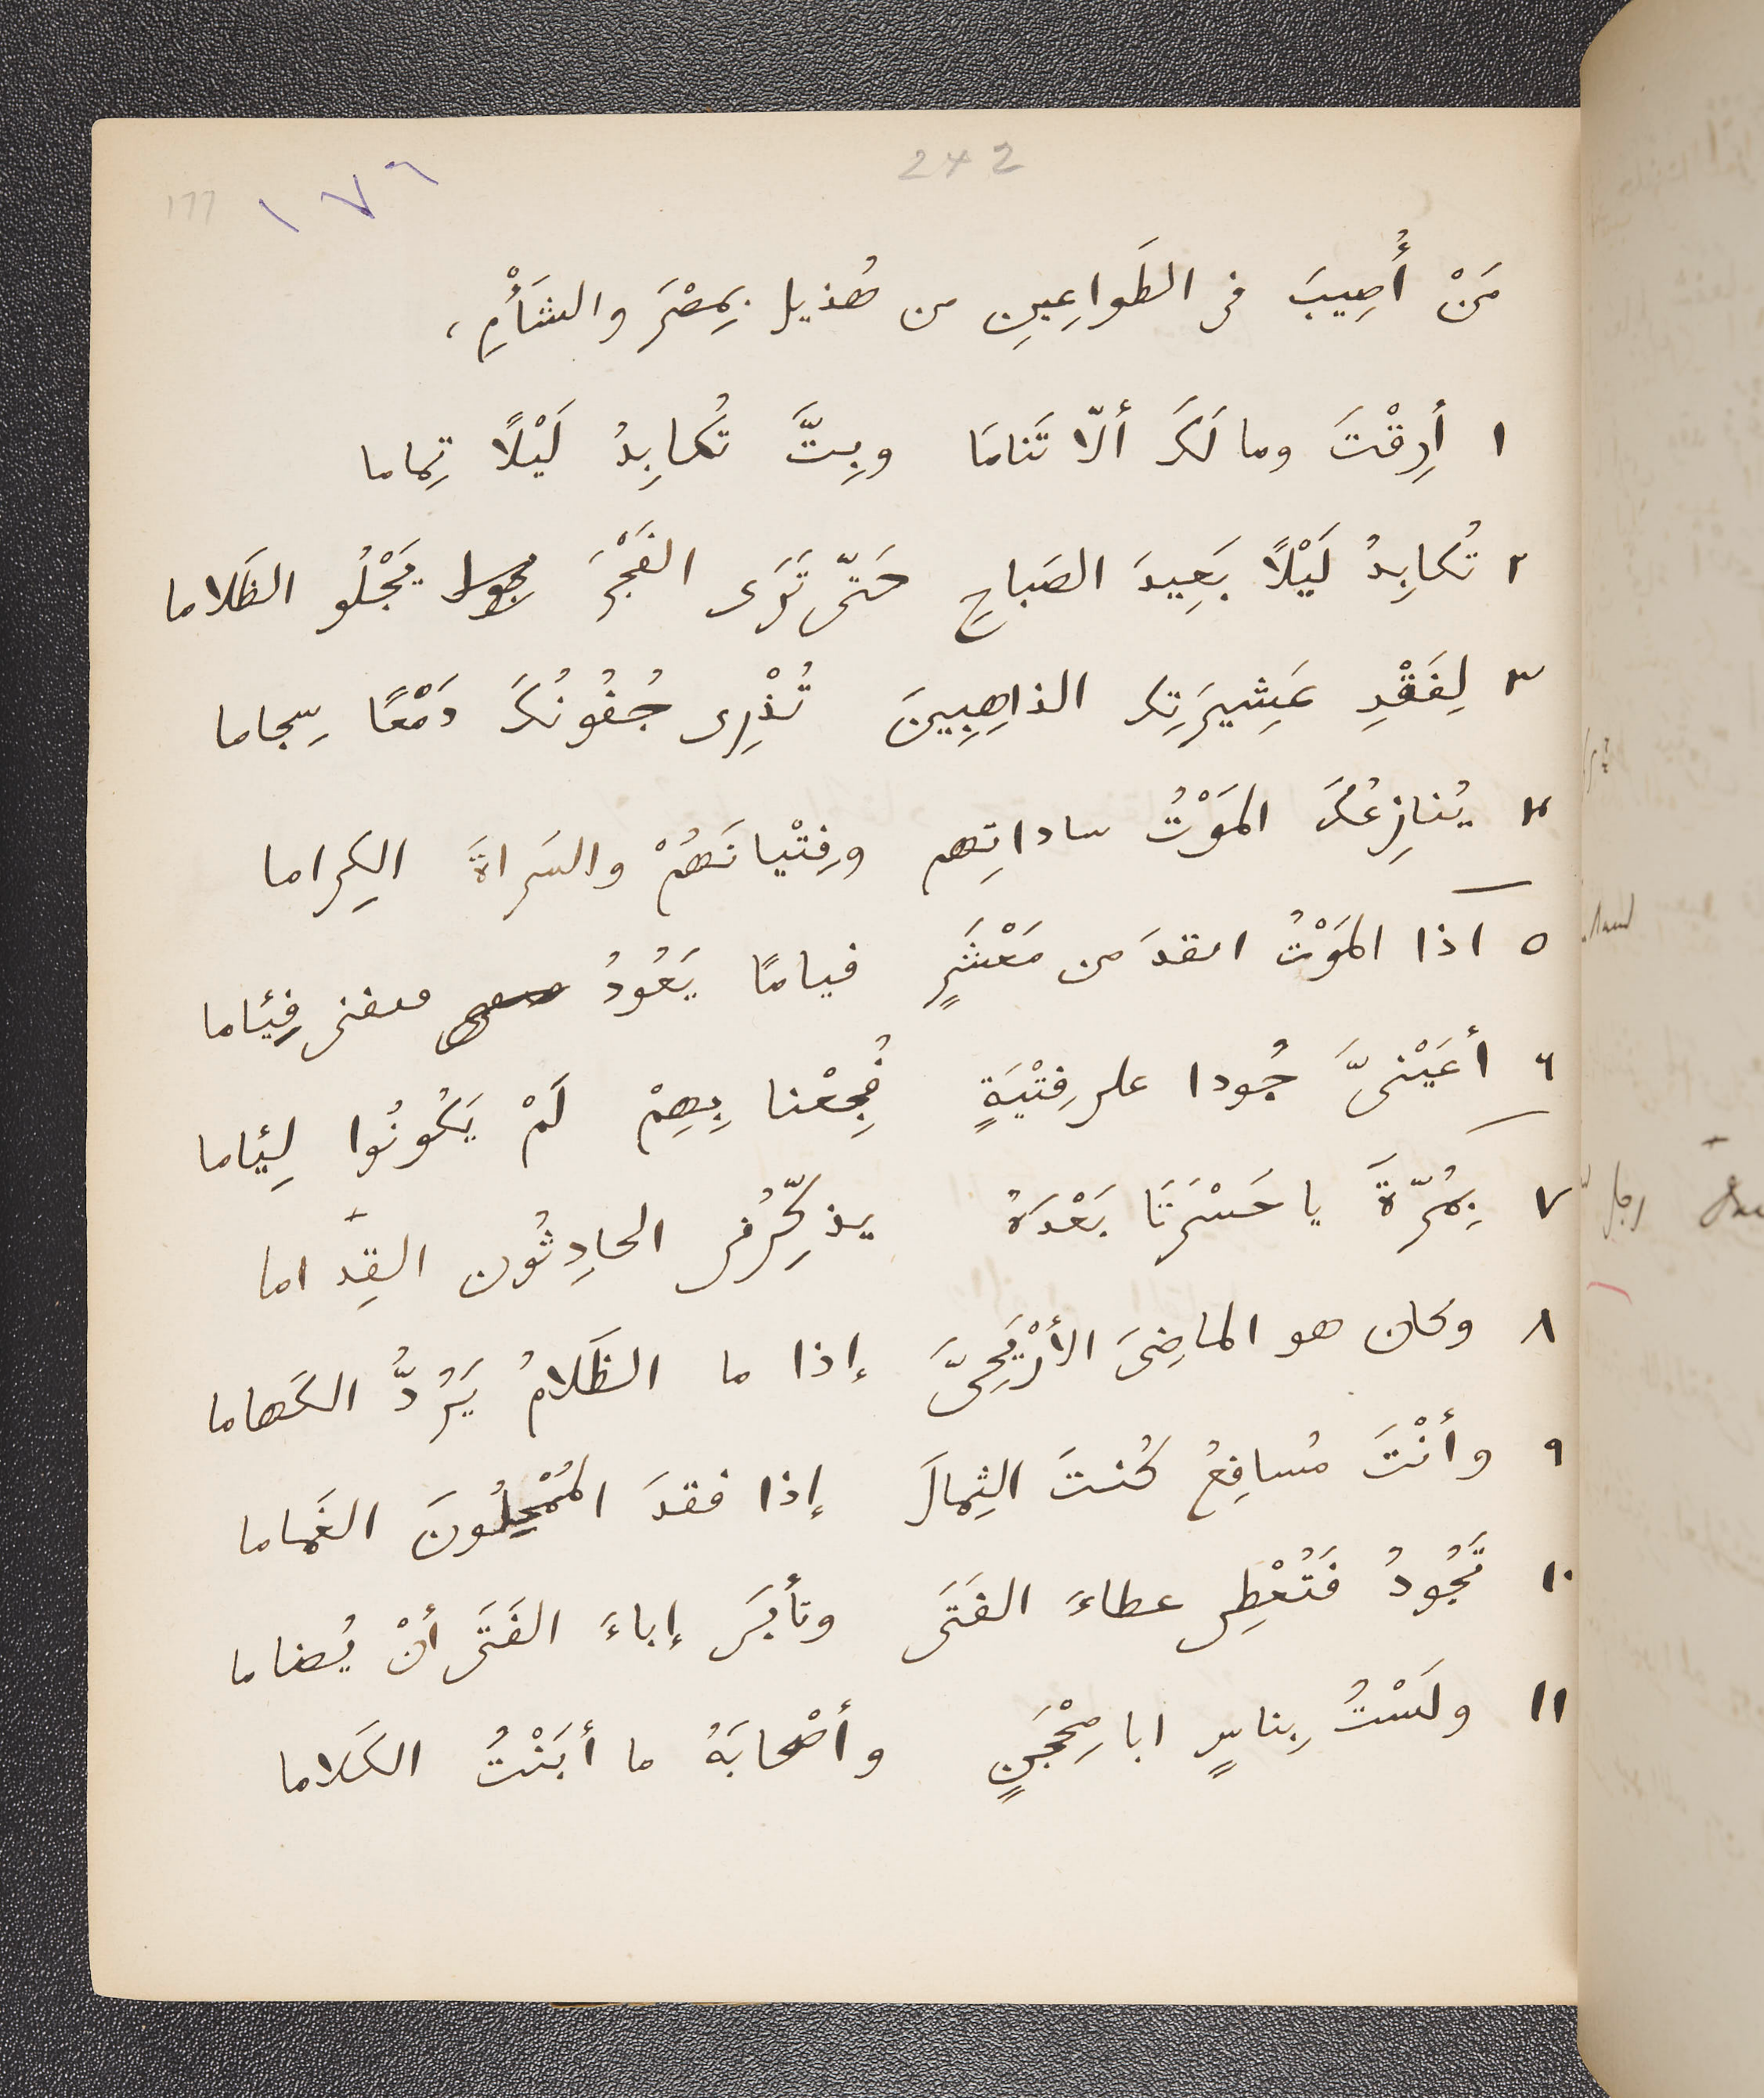 242
١٧٦
177
مَنْ أُصِيبَ فى الطَواعِينِ من هُذيل بِمِصْرَ والشَأْمِ ،
١ أَرِقْتَ وما لَكَ ألّا تَنامَا وبِتَّ تُكابِدُ لَيْلًا تِماما
٢ تُكابِدُ لَيْلًا بَعِيدَ الصَباحِ حَتّى تَرَى الفَجْرَ يَجْلُو الظَلاما
٣ لِفَقْدِ عَشِيرَتِكَ الذاهِبِينَ تُذْرِى جُفُونُكَ دَمْعًا سِجاما
٤ يُنازِعُكَ المَوْتُ ساداتِهم وفِتْيانَهُمْ والسَراةَ الكِراما
٥ اذا المَوْتُ انفدَ من مَعْشَرٍ فيامًا يَعُودُ فِئاما
٦ أعَيْنَىَّ جُودا على فِتْيَةٍ فُجِعْنا بِهِمْ لَمْ يَكُونُوا لِئاما
٧ بِمُرّةَ يا حَسْرَتَا بَعْدَهُ يذكِّرُنى الحادِثُون القِداما
٨ وكان هو الماضِىَ الأرْيَحِىَّ إذا ما الظَلامُ يَرُدُّ الكَهاما
٩ وأنْتَ مُسافِعُ كُنتَ الثِمالَ إذا فقدَ المُمْحِلُونَ الغَماما
١٠ تَجُودُ فَتُعْطِى عطاءَ الفَتَى وتأبَى إباءَ الفَتَى أنْ يُضاما
١١ ولَسْتُ بِناسٍ ابا مِحْجَنٍ وأصْحابَهُ ما أبَنْتُ الكَلاما
رجل